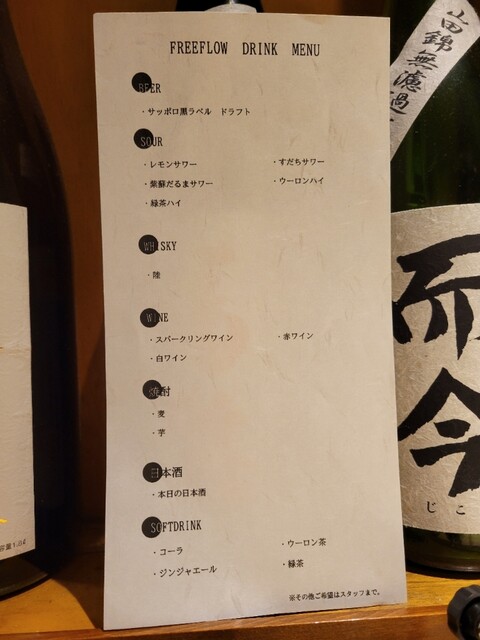 FREEFLOW DRINK MENU
BEER
・サッポロ黒ラベル ドラフト
SOUR
・レモンサワー ・すだちサワー
・紫蘇だるまサワー ・ウーロンハイ
・緑茶ハイ
WHISKY
・陸
WINE
・スパークリングワイン ・赤ワイン
・白ワイン
焼酎
・麦
・芋
日本酒
・本日の日本酒
SOFTDRINK
・コーラ ・ウーロン茶
・ジンジャエール ・緑茶
※その他ご希望はスタッフまで。
山田錦 無濾過
而今
じこ